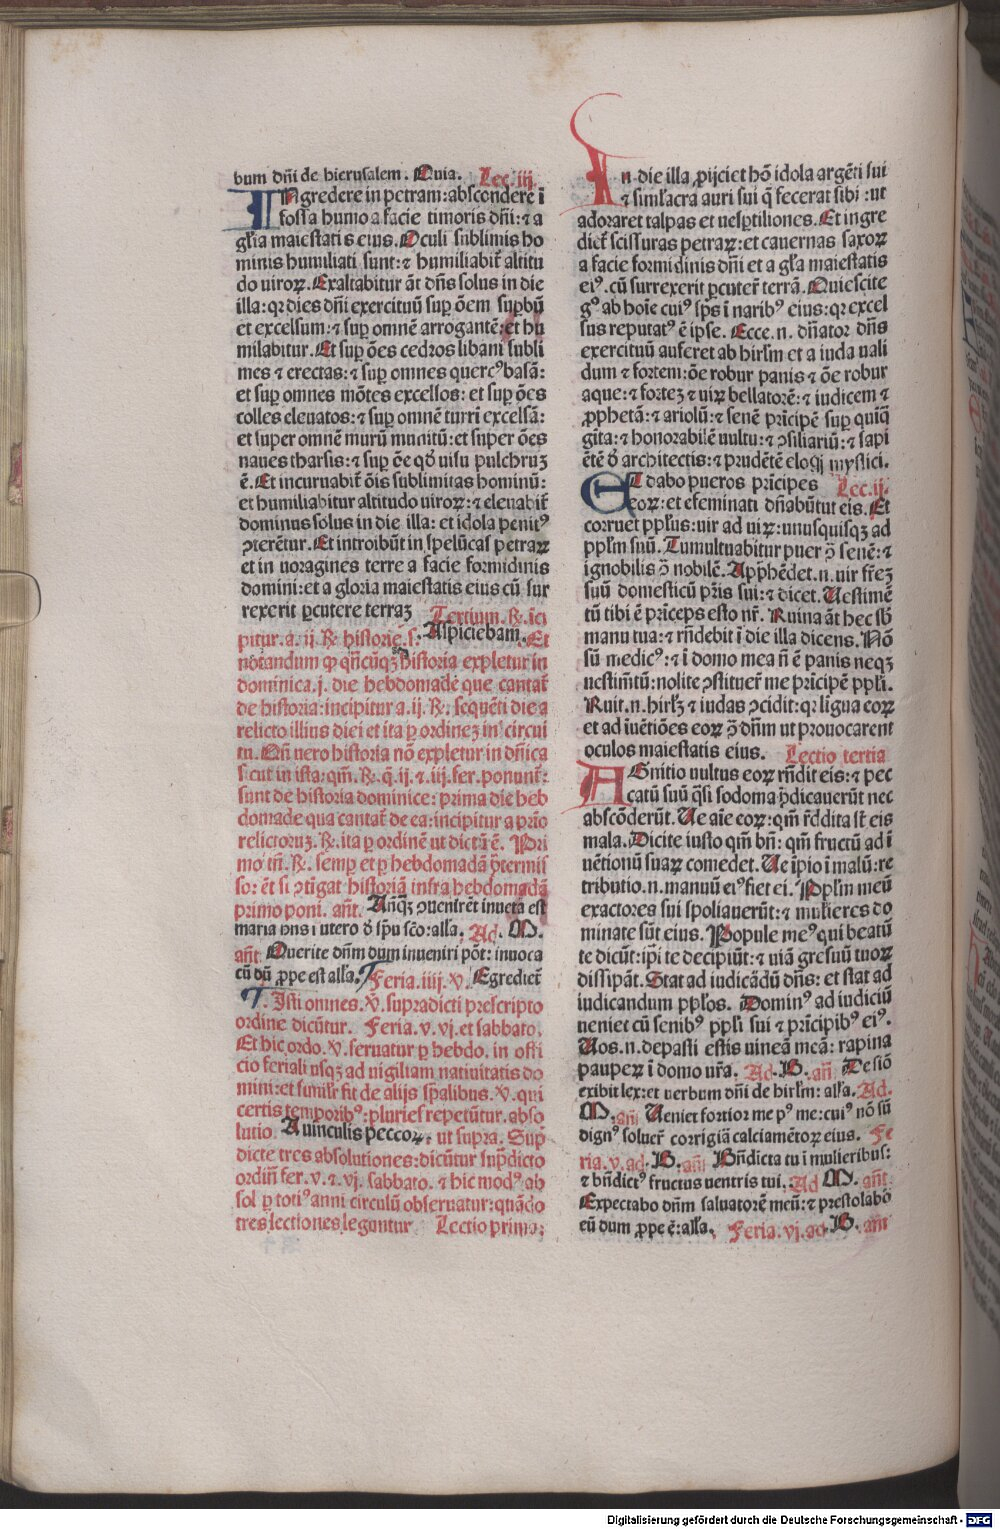 bum dñi de hierusalem. Quia. Lec. iij.
INgredere in petram: abscondere ĩ
fossa humo a facie timoris dñi: ⁊ a
gl̃ia maiestatis eius. Oculi sublimis ho
minis humiliati sunt: ⁊ humiliabit̃ altitu
do uiroꝝ. Exaltabitur ãt dñs solus in die
illa: qꝛ dies dñi exercituũ suꝑ õem suꝑbũ
et excelsum: ⁊ suꝑ omnẽ arrogantẽ: et hu
milabitur. Et suꝑ ões cedros libani subli
mes ⁊ erectas: ⁊ suꝑ omnes querc⁹ basã:
et suꝑ omnes mõtes excelsos: et suꝑ ões
colles eleuatos: ⁊ suꝑ omnẽ turrĩ excelsã:
et super omnẽ murũ munitũ: et super ões
naues tharsis: ⁊ suꝑ õe qď uisu pulchruꝫ
ẽ. Et incuruabit̃ õis sublimitas hominũ:
et humiliabitur altitudo uiroꝝ: ⁊ eleuabit̃
dominus solus in die illa: et idola penit⁹
ꝯterẽtur. Et introibũt in spelũcas petraꝝ
et in uoragines terre a facie formidinis
domini: et a gloria maiestatis eius cũ sur
rexerit ꝑcutere terraꝫ Tertium. ℞. ĩci
pitur. a. ij. ℞. historie. s. Aspiciebam. Et
notandum ꝙ qñcũqꝫ historia expletur in
dominica. j. die hebdomade que cantat̃
de historia: incipitur a. ij. ℞. sequẽti die a
relicto illius diei et ita ꝑ ordineꝫ in circui
tu. Qñ uero historia nõ expletur in dñica
sicut in ista: qm̃. ℞. q̃. ij. ⁊. iij. fer. ponunt̃:
sunt de historia dominice: prima die heb
domade qua cantat̃ de ea: incipitur a prio
relictoruꝫ. ℞. ita ꝑ ordinẽ ut dictũ ẽ. Pri
mo tñ. ℞. semꝑ et ꝑ hebdomadã p̃termis
so: ẽt si ꝯtigat historiã infra hebdomadã
primo poni. añt. Anq̃ꝫ ꝯuenirẽt inuẽta est
maria hñs i utero ď spũ scõ: alľa. Ad. M.
añt Querite dñm dum inueniri põt: inuoca
cũ dũ ꝓpe est alľa. Feria. iiij. ℣. Egrediet̃
⁊. Isti omnes. ℣. supradicti prescripto
ordine dicũtur. Feria. v. vj. et sabbato.
Et hic ordo. ℣. seruatur ꝑ hebdo. in offi
cio feriali usqꝫ ad uigiliam natiuitatis do
mini: et simiľr fit de alijs sp̃alibus. ℣. qui
certis temporib⁹: pluries repetũtur. abso
lutio. A uinculis peccoꝝ. ut supra. Sup̃
dicte tres absolutiones: dicũtur sup̃dicto
ordiñ fer. v. ⁊ vj. sabbato. ⁊ hic mod⁹ ab
sol ꝑ toti⁹ anni circulũ obseruatur: quãdo
tres lectiones leguntur Lectio prima.
In die illa ꝓijciet hõ idola argẽti sui
⁊ simľacra auri sui q̃ fecerat sibi: ut
adoraret talpas et uespertiliones. Et ingre
diet̃ scissuras petraꝝ: et cauernas saxoꝝ
a facie formidinis dñi et a gľa maiestatis
ei⁹. cũ surrexerit ꝑcuter̃ terrã. Quiescite
g⁹ ab hoĩe cui⁹ sp̃s ĩ narib⁹ eius: qꝛ excel
sus reputat⁹ ẽ ipse. Ecce. n. dñator dñs
exercituũ auferet ab hirľm et a iuda uali
dum ⁊ fortem: õe robur panis ⁊ õe robur
aque: ⁊ forteꝫ ⁊ uiꝝ bellatorẽ: ⁊ iudicem ⁊
ꝓphetã: ⁊ ariolũ: ⁊ senẽ prĩcipẽ suꝑ quĩq̃
gĩta: ⁊ honorabilẽ uultu: ⁊ ꝯsiliariũ: ⁊ sapi
ẽtẽ ď architectis: ⁊ prudẽtẽ eloqij mystici.
ET dabo pueros prĩcipes Lec. ij.
eoꝝ: et efeminati dñabũtur eis. Et
corruet ppľus: uir ad uiꝝ: unusquisqꝫ ad
ppľm suũ. Tumultuabitur puer ↄ̃ senẽ: ⁊
ignobilis ↄ̃ nobilẽ. Apprhẽdet. n. uir fr̃eꝫ
suũ domesticũ pr̃is sui: ⁊ dicet. Uestimẽ
tũ tibi ẽ prĩceps esto nr̃. Ruina ãt hec sb̃
manu tua: ⁊ rñdebit ĩ die illa dicens. Nõ
sũ medic⁹: ⁊ ĩ domo mea ñ ẽ panis neqꝫ
uestim̃tũ: nolite ꝯstituer̃ me prĩcipẽ ppľi.
Ruit. n. hirľꝫ ⁊ iudas ꝯcidit: qꝛ lĩgua eoꝝ
et ad iuẽtiões eoꝝ ↄ̃ dñm ut prouocarent
oculos maiestatis eius. Lectio tertia
AGnitio uultus eoꝝ rñdit eis: ⁊ pec
catũ suũ q̃si sodoma p̃dicauerũt nec
abscõderũt. Ue aĩe eoꝝ: qm̃ r̃ddita sĩ eis
mala. Dicite iusto qm̃ bñ: qm̃ fructũ ad ĩ
uẽtionũ suaꝝ comedet. Ue ĩpio ĩ malũ: re
tributio. n. manuũ ei⁹ fiet ei. Ppľm meũ
exactores sui spoliauerũt: ⁊ mulieres do
minate sũt eius. Popule me⁹ qui beatũ
te dicũt: ipĩ te decipiũt: ⁊ uiã gresuũ tuoꝝ
dissipãt. Stat ad iudicãdũ dñs: et stat ad
iudicandum ppľos. Domin⁹ ad iudiciũ
ueniet cũ senib⁹ ppľi sui ⁊ prĩcipib⁹ ei⁹.
Uos. n. depasti estis uineã meã: rapina
pauperꝝ ĩ domo ur̃a. Ad. B. añ De siõ
exibit lex: et uerbum dñi de hirľm: alľa. Ad.
M. añ Ueniet fortior me p⁹ me: cui⁹ nõ sũ
dign⁹ soluer̃ corrigiã calciamẽtoꝝ eius. Fe
ria. v. ad. B. añ Bñdicta tu ĩ mulieribus:
⁊ bñdict⁹ fructus uentris tui. Ad M. añt.
Expectabo dñm saluatorẽ meũ: ⁊ prestolabõ
eũ dum ꝓpe ẽ: alľa. Feria. vj. ad. B. añt
Digitalisierung gefördert durch die Deutsche Forschungsgemeinschaft - DFG